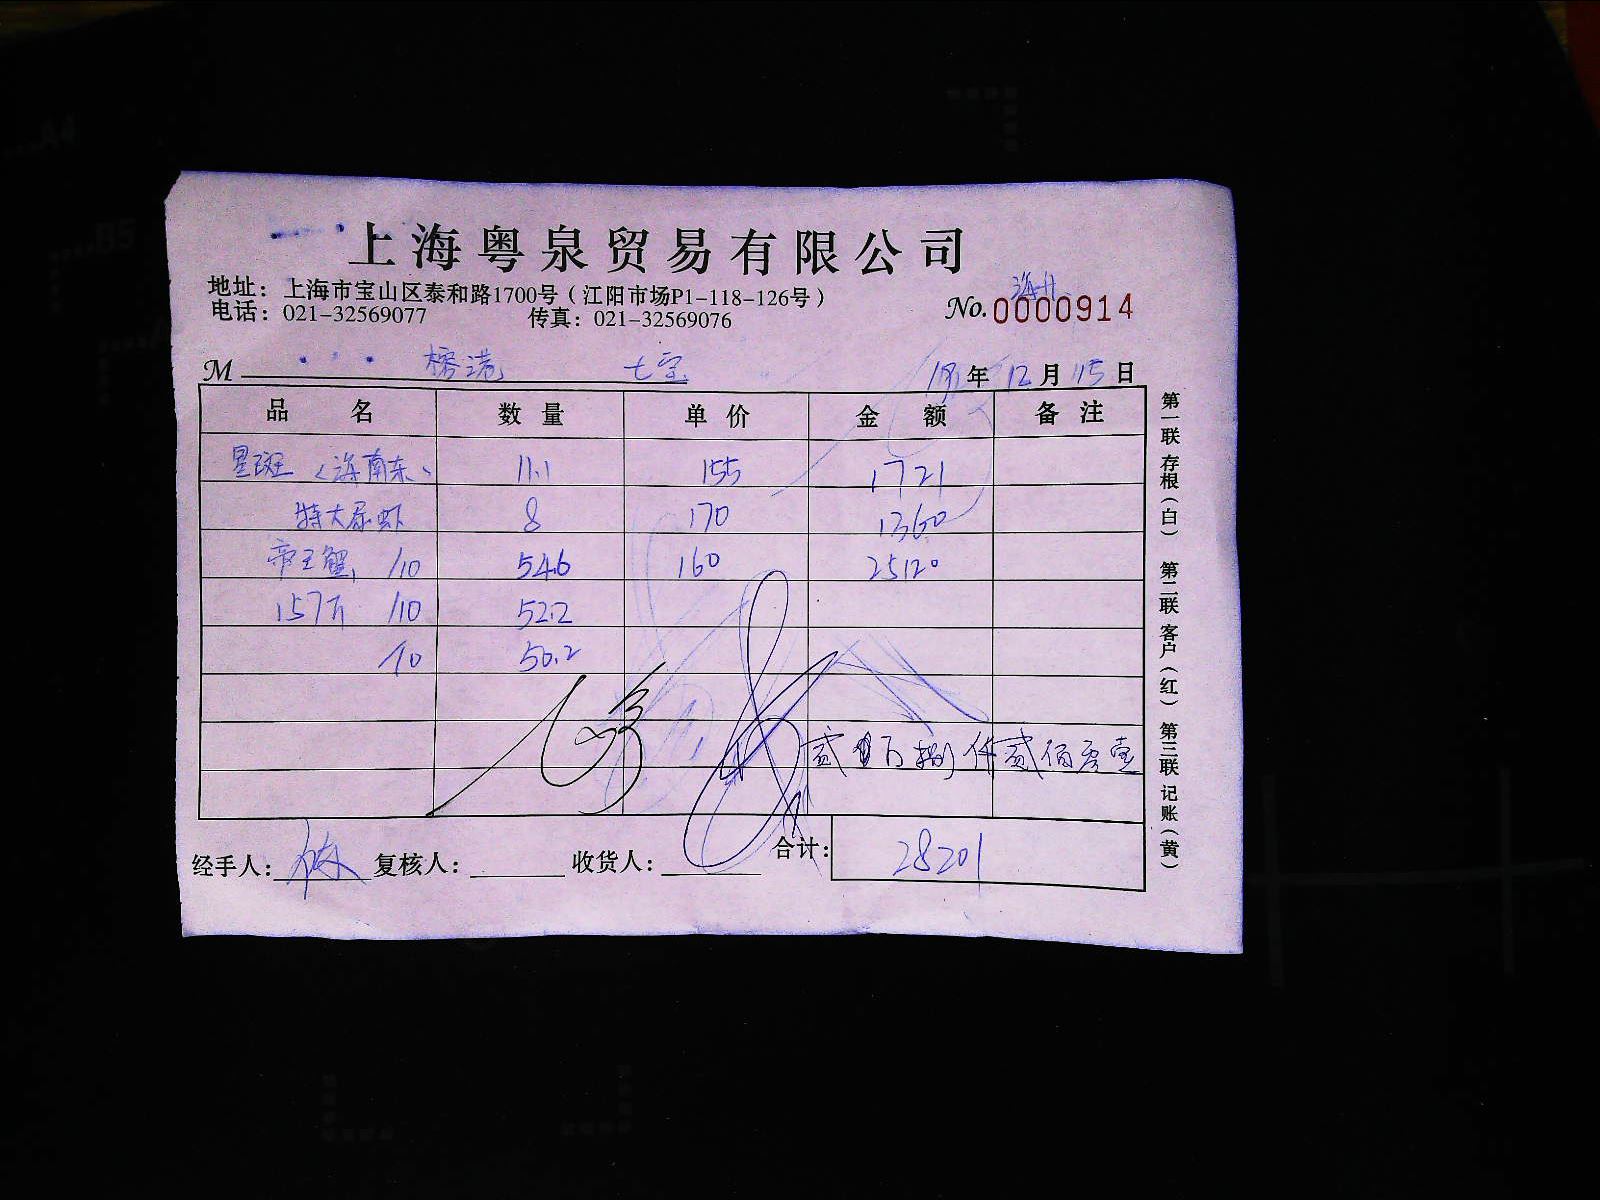 上海粤泉贸易有限公司
地址：上海市宝山区泰和路1700号（江阳市场P1-118-126号）
电话：021-32569077 传真：021-32569076
No.0000914
M 榕港 七宝 18年12月15日
品名 数量 单价 金额 备注
星斑（海南东） 11.1 155 1721
特大尿虾 8 170 1360
帝王蟹 /10 54.6 160 25120
157斤 /10 52.2
/10 50.2
贰万捌仟贰佰零壹
合计：28201
经手人： 复核人： 收货人：
第一联 存根（白） 第二联 客户（红） 第三联 记账（黄）